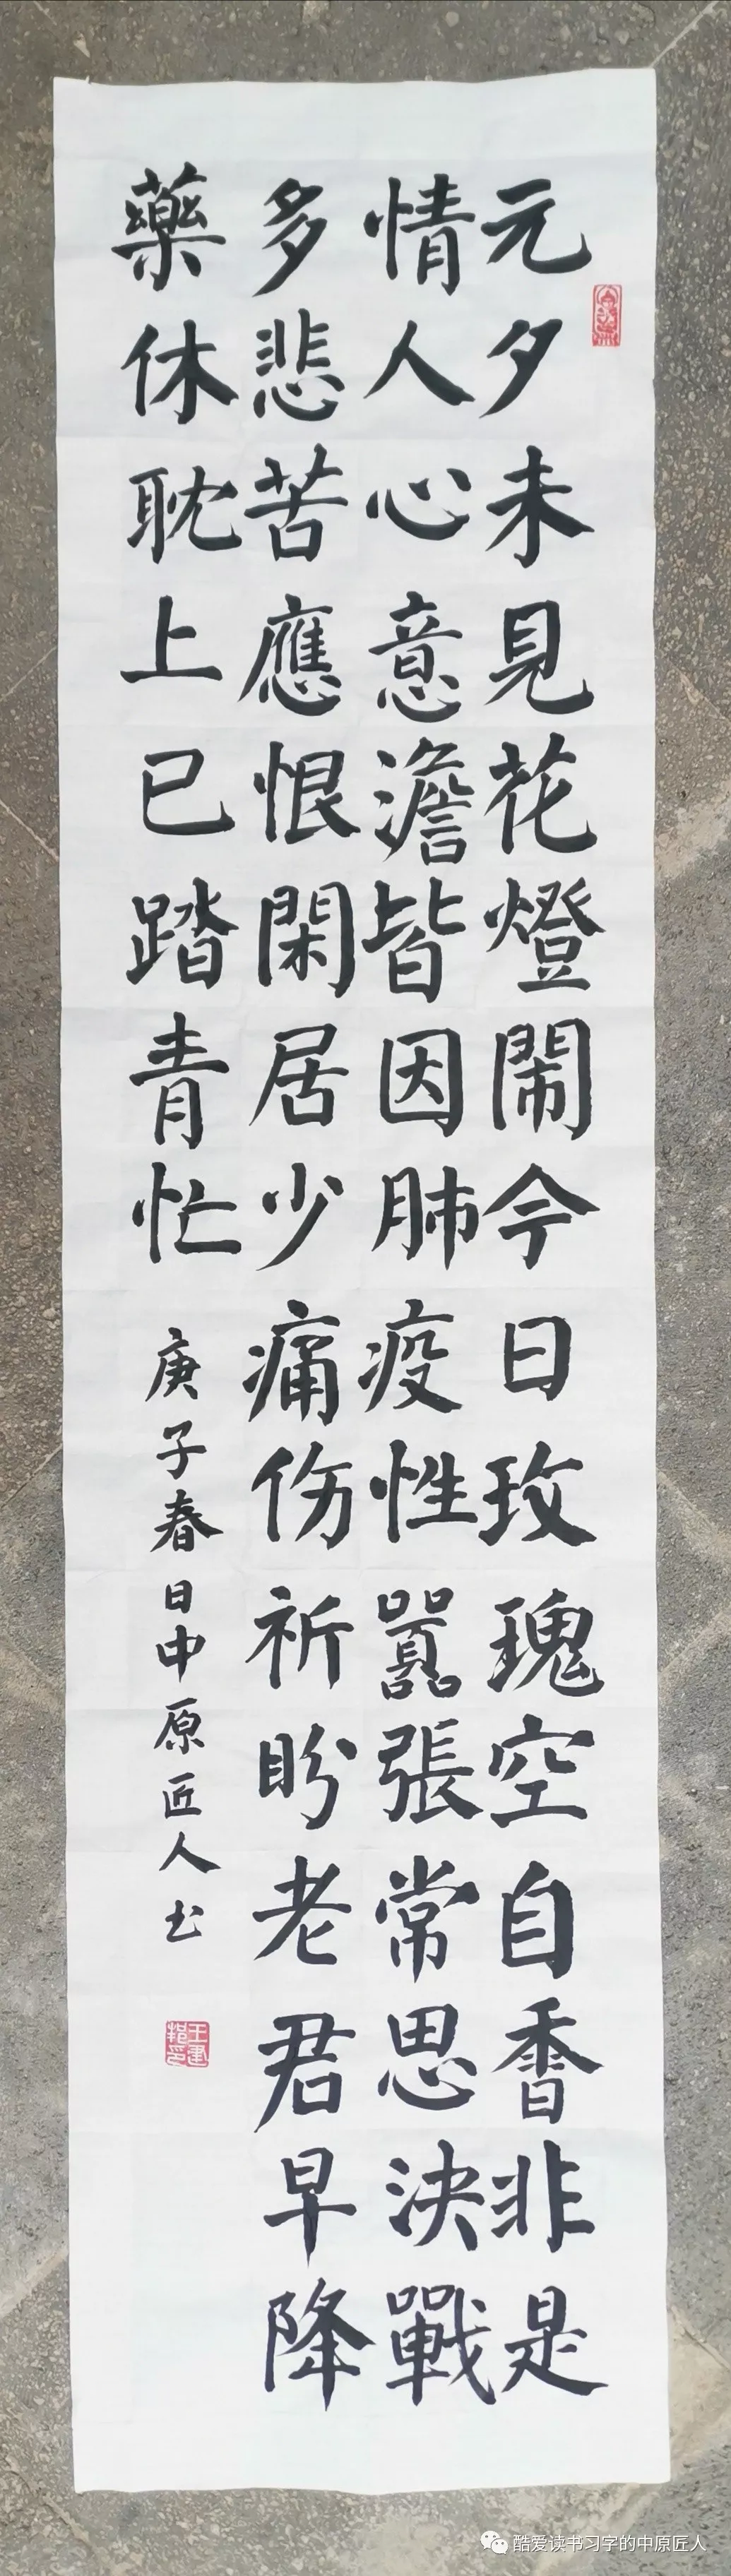 元夕未見花燈鬧今日玫瑰空自香非是
情人心意澹皆因肺疫性嚣張常思決戰
多悲苦應恨閑居少痛伤祈盼老君早降
藥休耽上巳踏青忙
庚子春日中原匠人书
酷爱读书习字的中原匠人